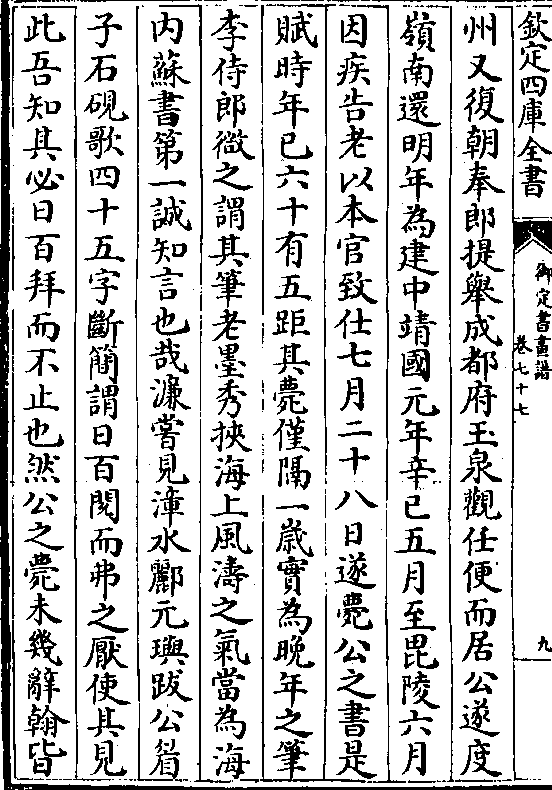 欽定四庫全書
御定書畫譜
卷七十七
九
州又復朝奉郎提舉成都府玉泉觀任便而居公遂度
嶺南還明年為建中靖國元年辛巳五月至毘陵六月
因疾告老以本官致仕七月二十八日遂薨公之書是
賦時年已六十有五距其薨僅隔一嵗實為晚年之筆
李侍郎微之謂其筆老墨秀挾海上風濤之氣當為海
内蘇書第一誠知言也哉濂嘗見漳水酈元璵跋公眉
子石硯歌四十五字斷簡謂日百閲而弗之厭使其見
此吾知其必日百拜而不止也然公之薨未幾辭翰皆